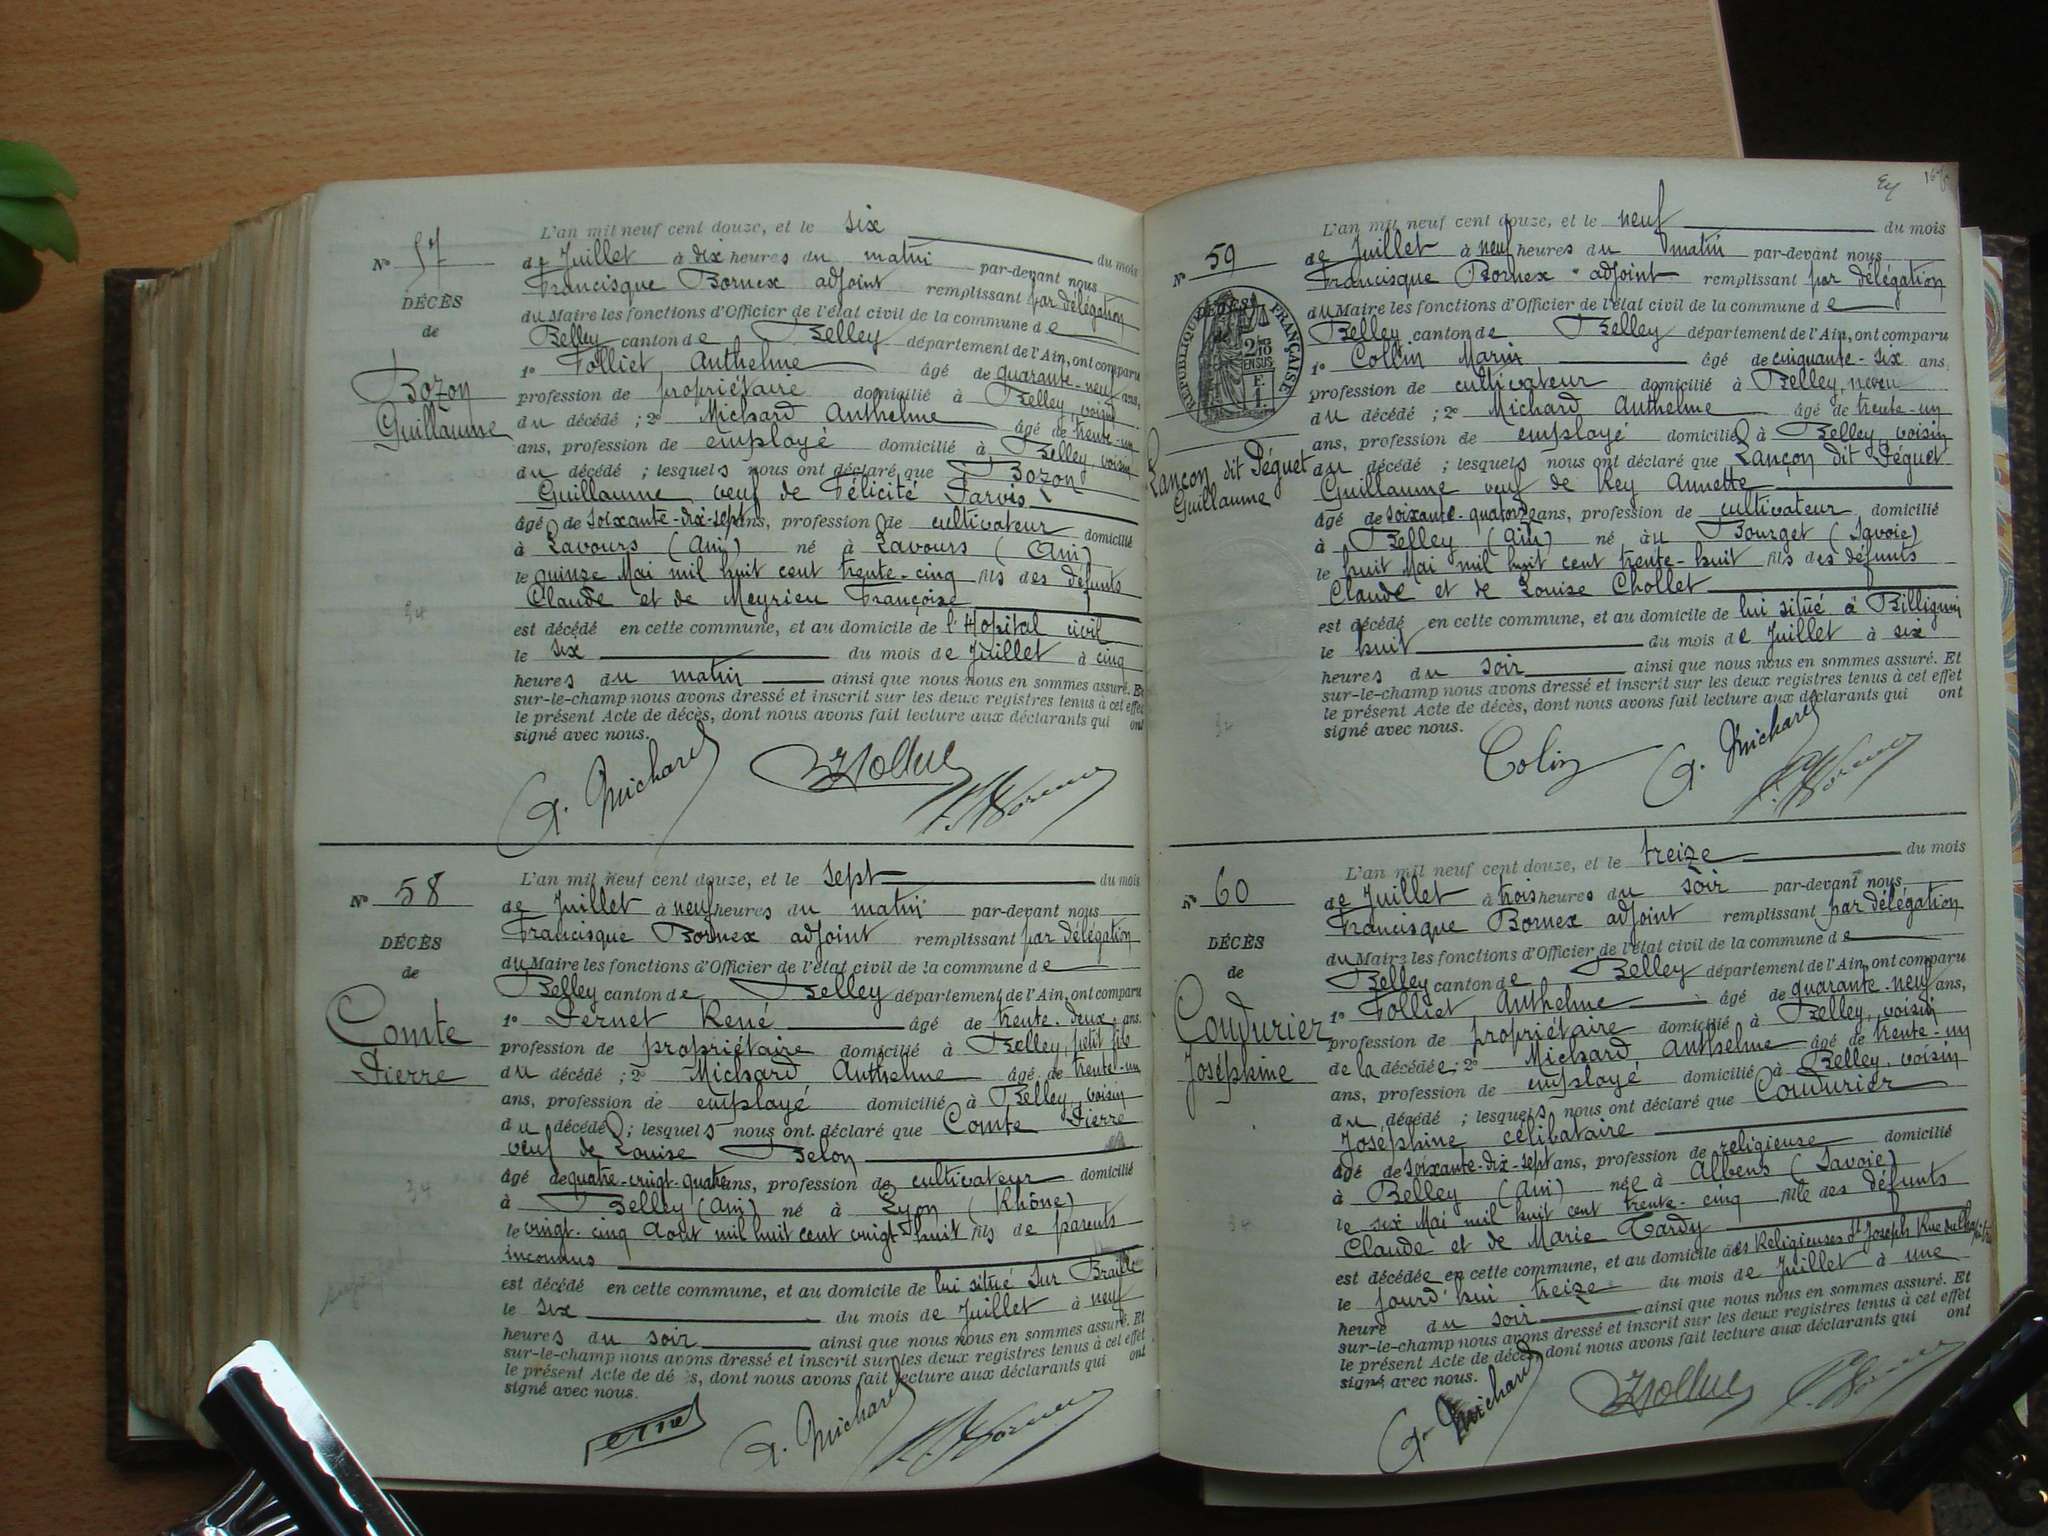 Nº 57
DÉCÈS
de
Bozon
Guillaume
L'an mil neuf cent douze, et le six du mois
de Juillet à dix heures du matin par-devant nous
Francisque Bornex adjoint remplissant par délégation
du Maire les fonctions d'Officier de l'état civil de la commune de
Belley canton de Belley département de l'Ain, ont comparu
1º Folliet, Anthelme âgé de quarante-neuf ans,
profession de propriétaire domicilié à Belley, voisin
du décédé ; 2º Michard Anthelme âgé de trente-un
ans, profession de employé domicilié à Belley, voisin
du décédé ; lesquels nous ont déclaré que Bozon
Guillaume veuf de Félicité Parvis
âgé de soixante-dix-sept ans, profession de cultivateur domicilié
à Lavours (Ain) né à Lavours (Ain)
le quinze Mai mil huit cent trente-cinq fils des défunts
Claude et de Meyrieu Françoise
est décédé en cette commune, et au domicile de l'Hopital civil
le six du mois de Juillet à cinq
heures du matin ainsi que nous nous en sommes assuré. Et
sur-le-champ nous avons dressé et inscrit sur les deux registres tenus à cet effet
le présent Acte de décès, dont nous avons fait lecture aux déclarants qui ont
signé avec nous.
A. Michard Folliet F. Bornex
Nº 58
DÉCÈS
de
Comte
Pierre
L'an mil neuf cent douze, et le sept du mois
de Juillet à neuf heures du matin par-devant nous
Francisque Bornex adjoint remplissant par délégation
du Maire les fonctions d'Officier de l'état civil de la commune de
Belley canton de Belley département de l'Ain, ont comparu
1º Pernet René âgé de trente-deux ans.
profession de propriétaire domicilié à Belley, petit fils
du décédé ; 2º Michard Anthelme âgé de trente-un
ans, profession de employé domicilié à Belley, voisin
du décédé ; lesquels nous ont déclaré que Comte Pierre
veuf de Louise Belon
âgé de quatre-vingt-quatre ans, profession de cultivateur domicilié
à Belley (Ain) né à Lyon (Rhône)
le vingt-cinq Aout mil huit cent vingt-huit fils de parents
inconnus
est décédé en cette commune, et au domicile de lui situé Sur Braille
le six du mois de Juillet à neuf
heures du soir ainsi que nous nous en sommes assuré. Et
sur-le-champ nous avons dressé et inscrit sur les deux registres tenus à cet effet
le présent Acte de décès, dont nous avons fait lecture aux déclarants qui ont
signé avec nous.
Pernet A. Michard F. Bornex
Nº 59
RÉPUBLIQUE FRANÇAISE
2/10 EN SUS
Lançon dit Péguet
Guillaume
L'an mil neuf cent douze, et le neuf du mois
de Juillet à neuf heures du matin par-devant nous
Francisque Bornex adjoint remplissant par délégation
du Maire les fonctions d'Officier de l'état civil de la commune de
Belley canton de Belley département de l'Ain, ont comparu
1º Collin Marin âgé de cinquante-six ans,
profession de cultivateur domicilié à Belley, neveu
du décédé ; 2º Michard Anthelme âgé de trente-un
ans, profession de employé domicilié à Belley, voisin
du décédé ; lesquels nous ont déclaré que Lançon dit Péguet
Guillaume veuf de Rey Annette
âgé de soixante-quatorze ans, profession de cultivateur domicilié
à Belley (Ain) né au Bourget (Savoie)
le huit Mai mil huit cent trente-huit fils des défunts
Claude et de Louise Chollet
est décédé en cette commune, et au domicile de lui situé à Billignin
le huit du mois de Juillet à six
heures du soir ainsi que nous nous en sommes assuré. Et
sur-le-champ nous avons dressé et inscrit sur les deux registres tenus à cet effet
le présent Acte de décès, dont nous avons fait lecture aux déclarants qui ont
signé avec nous.
Colin A. Michard F. Bornex
Nº 60
DÉCÈS
de
Coudurier
Joséphine
L'an mil neuf cent douze, et le treize du mois
de Juillet à trois heures du soir par-devant nous
Francisque Bornex adjoint remplissant par délégation
du Maire les fonctions d'Officier de l'état civil de la commune de
Belley canton de Belley département de l'Ain, ont comparu
1º Folliet, Anthelme âgé de quarante-neuf ans,
profession de propriétaire domicilié à Belley, voisin
de la décédée ; 2º Michard, Anthelme âgé de trente-un
ans, profession de employé domicilié à Belley, voisin
du décédé ; lesquels nous ont déclaré que Coudurier
Joséphine célibataire
âgé de soixante-dix-sept ans, profession de religieuse domicilié
à Belley (Ain) née à Albens (Savoie)
le six Mai mil huit cent trente-cinq fille des défunts
Claude et de Marie Tardy
est décédée en cette commune, et au domicile des Religieuses St Joseph Rue
le jourd'hui treize du mois de Juillet à une
heure du soir ainsi que nous nous en sommes assuré. Et
sur-le-champ nous avons dressé et inscrit sur les deux registres tenus à cet effet
le présent Acte de décès, dont nous avons fait lecture aux déclarants qui ont
signé avec nous.
A. Michard Folliet F. Bornex